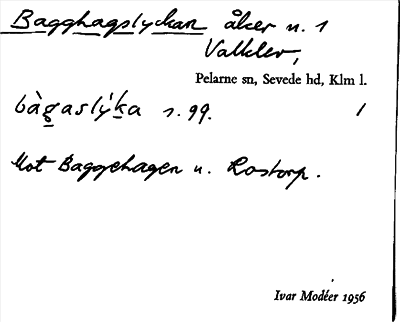 Bagghagslyckan åker n. 1
Valklev,
Pelarne sn, Sevede hd, Klm l.
bàgaslýka s. 99. 1
Mot Baggehagen u. Rostorp.
Ivar Modéer 1956